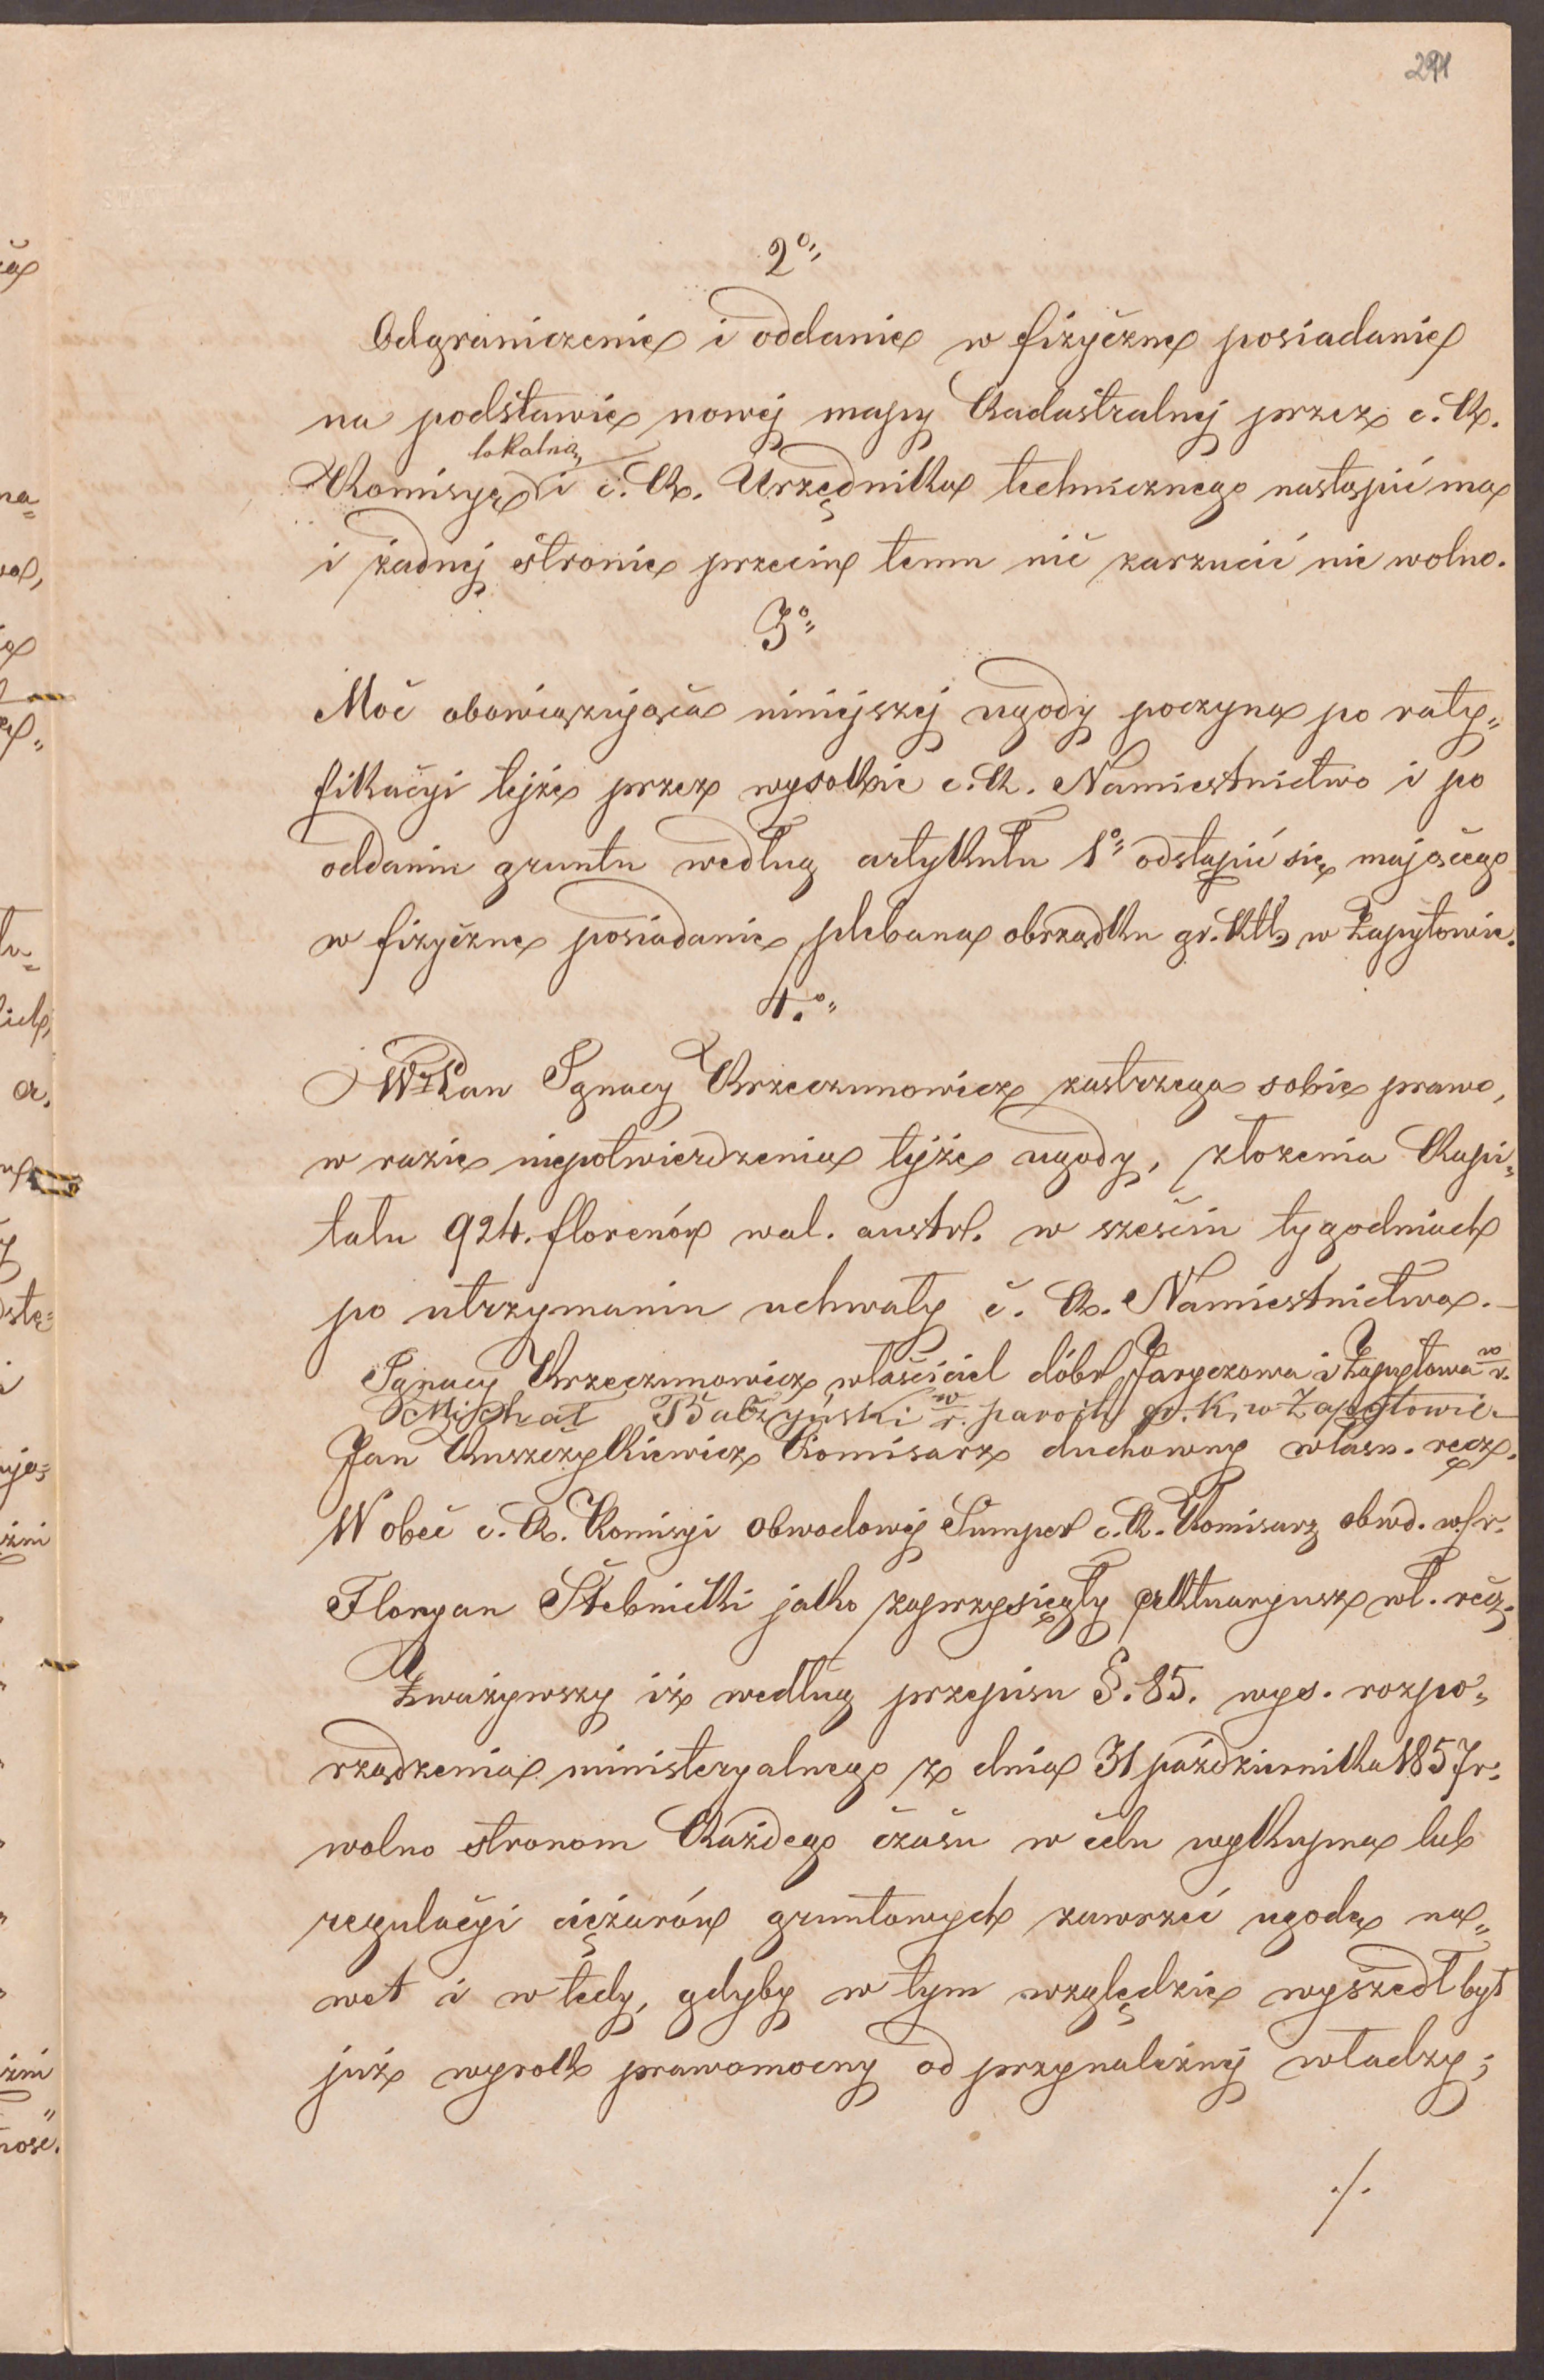 291
2°„
Odgraniczenie i oddanie w fizyczne posiadanie
na podstawie nowej mapy Kadastralnej przez c. K.
lokalną
Komisyę i c. K. Urzędnika technicznego nastąpić ma
i żadnej stronie przeciw temu nić zarzucić nie wolno.
3°„
Moć obowiązująca niniejszej ugody poczyna po raty„
fikacyi tejże przez wysokie c. K. Namiestnictwo i po
oddaniu gruntu według artykułu 1°„ odstąpić się mającego
w fizyczne posiadanie plebana obrządku gr. Kth. w Zapytowie.
4.°„
Wż Pan Ignacy Krzeczunowicz zastrzega sobie prawo,
w razie niepotwierdzenia tejże ugody, złożenia Kapi„
tału 924. florenów wal. austr. w sześciu tygodniach
po utrzymaniu uchwały c. K. Namiestnictwa. —
Ignacy Krzeczunowicz właściciel dóbr Jaryczowa i Zapytowa w. r.
Michał Baczyński w. r. paroch gr. K. w Zapytowie
Jan Kuszczykiewicz Komisarz duchowny własn. ręcz.
Wobec c. K. Komisyi obwodowej Sumper c. K. Komisarz obwd. w. r.
Floryan Stebnicki jako zaprzysięgły aktuaryusz wł. ręcz.
Zważywszy iż według przepisu §. 85. wys. rozpo„
rządzenia ministeryalnego z dnia 31 października 1857 r.
wolno stronom Każdego czasu w celu wykupna lub
regulacyi ciężarów gruntowych zawrzeć ugodę na„
wet i w tedy, gdyby w tym względzie wyszedł był
już wyrok prawomocny od przynależnej władzy;
./.